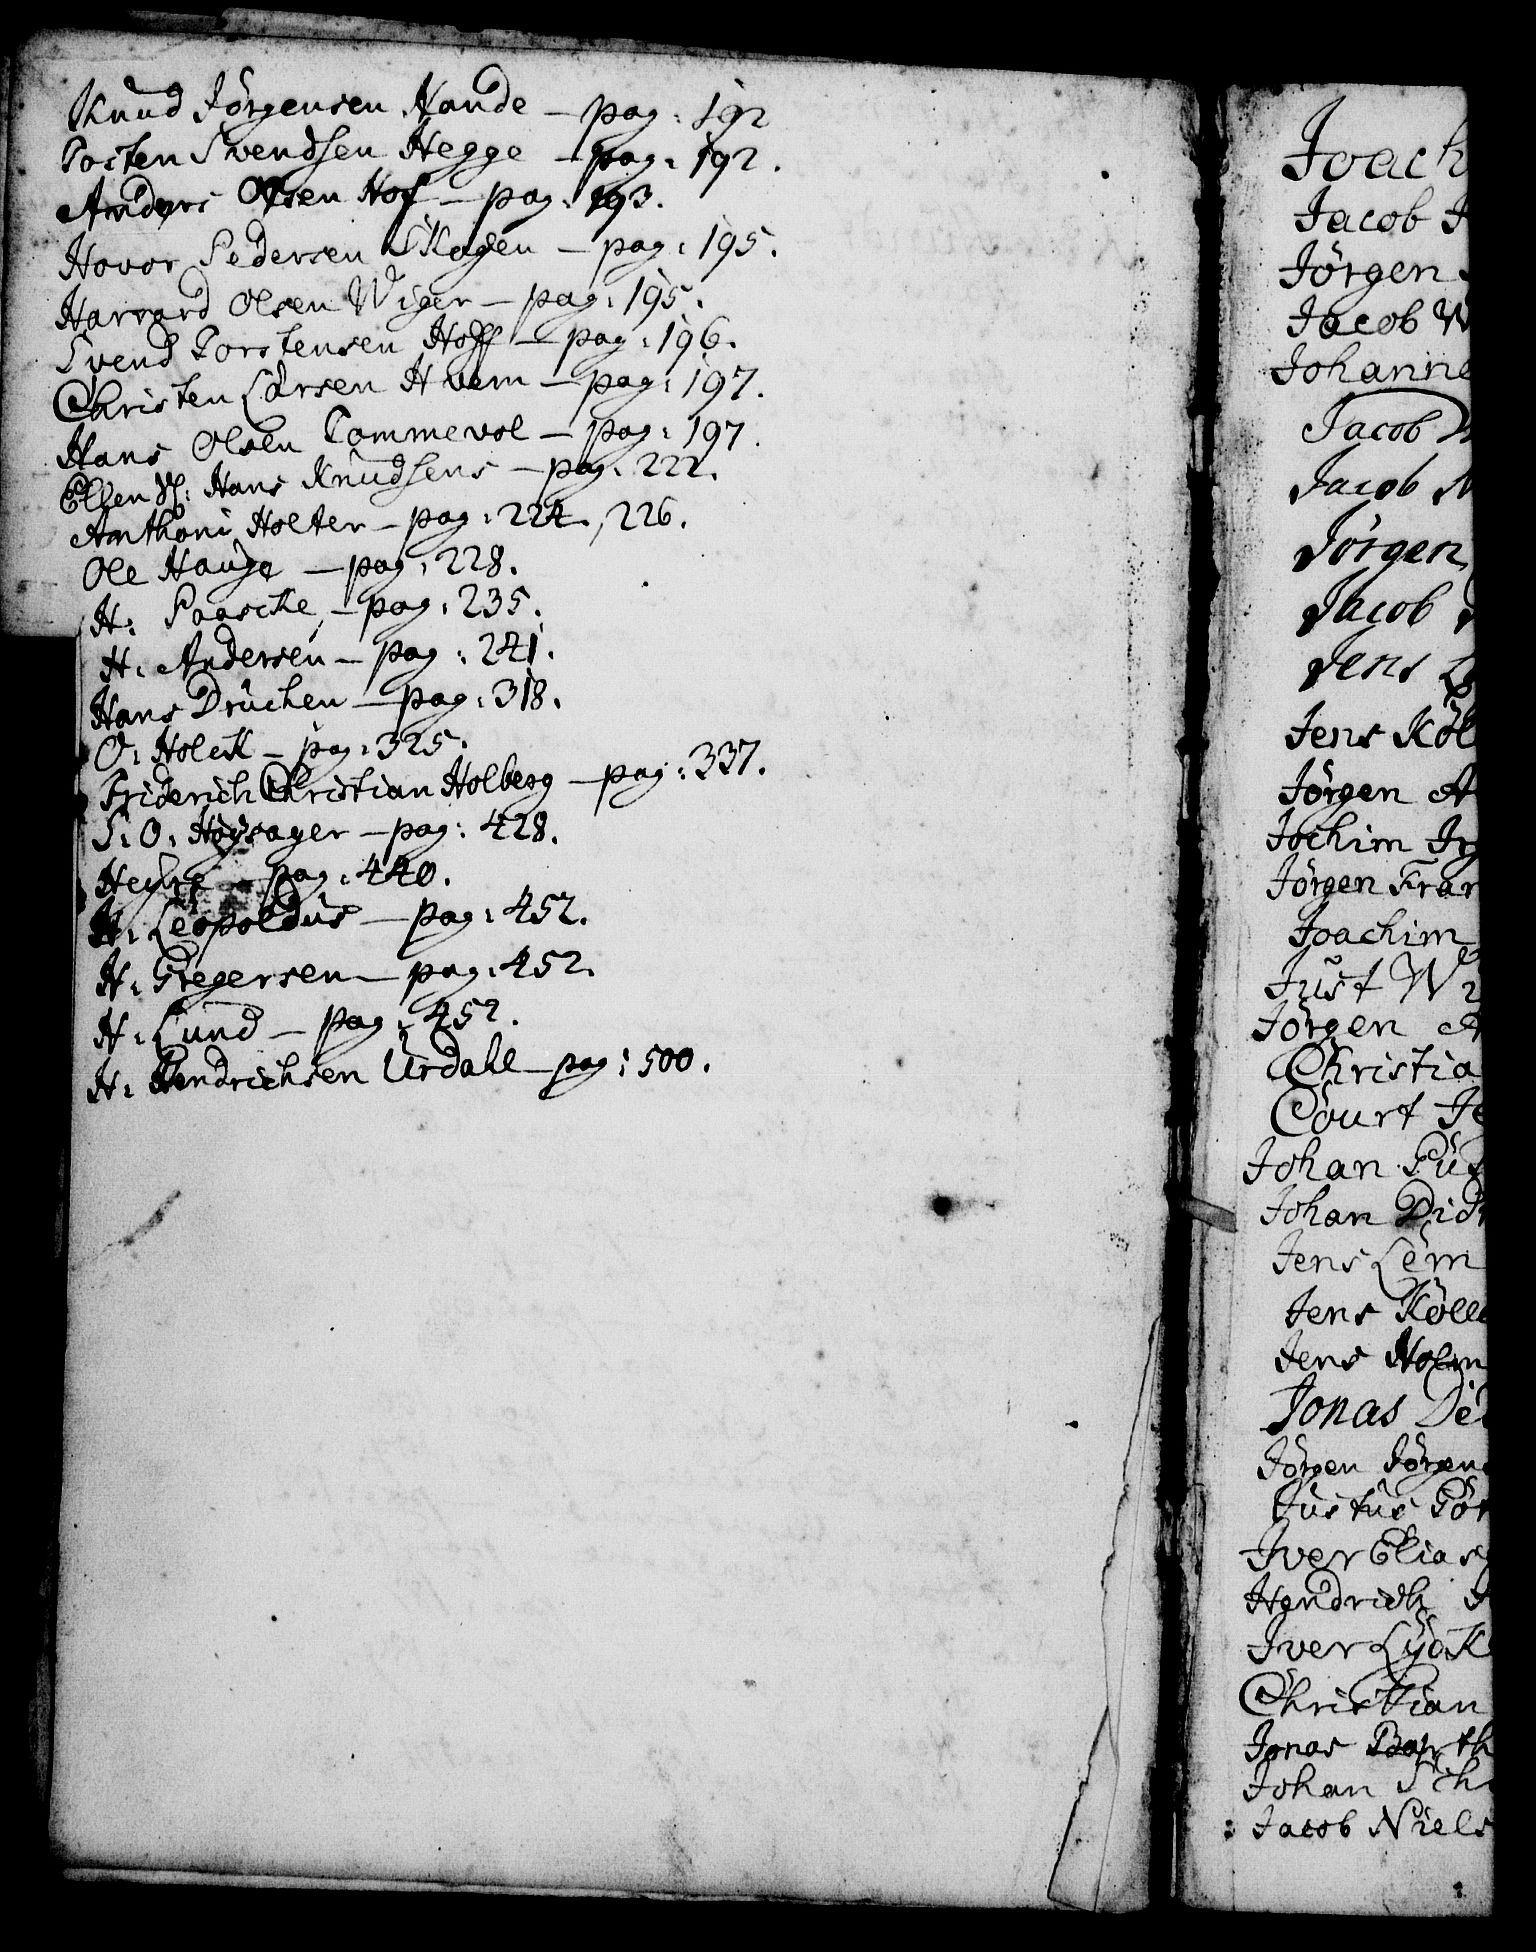 Knud Jörgensen Hande – pag: 192
Tosten Svendsen Hegge – pag: 192.
Anders Olsen Hof – pag: 193.
Hovor Pedersen Skogen – pag: 195.
Harvord Olsen Wiger – pag: 195.
Svend Torstensen Hoff – pag: 196.
Christen Larsen Hvam – pag: 197.
Hans Olsen Tommevol – pag: 197.
Ellen Hans Knudsens – pag: 222.
Anthoni Holter – pag: 224, 226.
Ole Hauge – pag: 228.
H: Paascke – pag: 235.
H: Andersen – pag: 241.
Hans Drüchen – pag: 318.
O: Holck – pag: 325.
Friderich Christian Holberg – pag: 337.
S: O: Höysager – pag: 428.
Heyire – pag: 440.
H: Leopoldus – pag: 452.
H: Gregersen – pag: 452.
H: Lund – pag: 452.
H: Hendrichsen Urdahl – pag: 500.
Joach
Jacob J
Jörgen
Jacob W
Johanne
Jacob
Jacob
Jörgen
Jacob
Jens
Jens Köl
Jörgen A
Jochim
Jörgen Fran
Joachim
Just W
Jörgen A
Christia
Court Je
Johan
Johan Did
Jens Lem
Jens Kölle
Jens Holm
Jonas De
Jörgen Jörgens
Justus
Jver Elias
Hendrich
Jver Lyck
Christian
Jonas Barth
Johan Sch
Jacob Niels